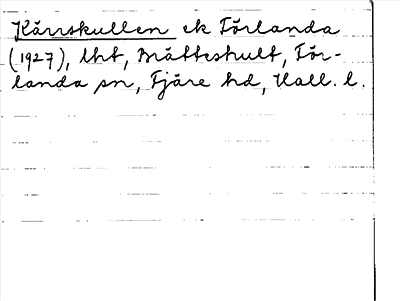 Kärrskullen ek Förlanda
(1927), lht, Brätteshult, För-
landa sn, Fjäre hd, Hall. l.